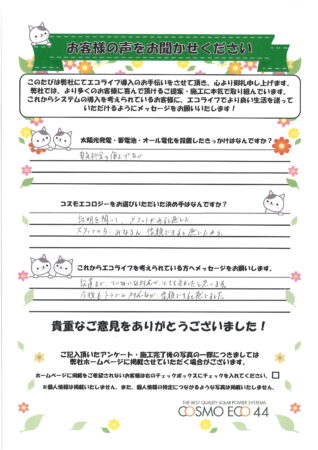 お客様の声をお聞かせください
このたびは弊社にてエコライフ導入のお手伝いをさせて頂き、心より御礼申し上げます。
弊社では、より多くのお客様に喜んで頂けるご提案・施工に本気で取り組んでいます。
これからシステムの導入を考えられているお客様に、エコライフでより良い生活を送って
いただけるようにメッセージをお願いいたします！
太陽光発電・蓄電池・オール電化を設置したきっかけはなんですか？
電気料金の値上げ
コスモエコロジーをお選びいただいた決め手はなんですか？
説明を聞いて、メリットがあると思った。
スタッフさん、みなさん 信頼できると思ったから。
これからエコライフを考えられている方へメッセージをお願いします。
信頼できると思いました。
貴重なご意見をありがとうございました！
ご記入頂いたアンケート・施工完了後の写真の一部につきましては
弊社ホームページに掲載させていただく場合がございます。
ホームページに掲載をご希望されないお客様は右のチェックボックスにチェックを入れてください。
※個人情報は掲載いたしません、また、個人情報の特定につながるような写真は掲載いたしません。
THE BEST QUALITY SOLAR POWER SYSTEMS
COSMO ECO 44